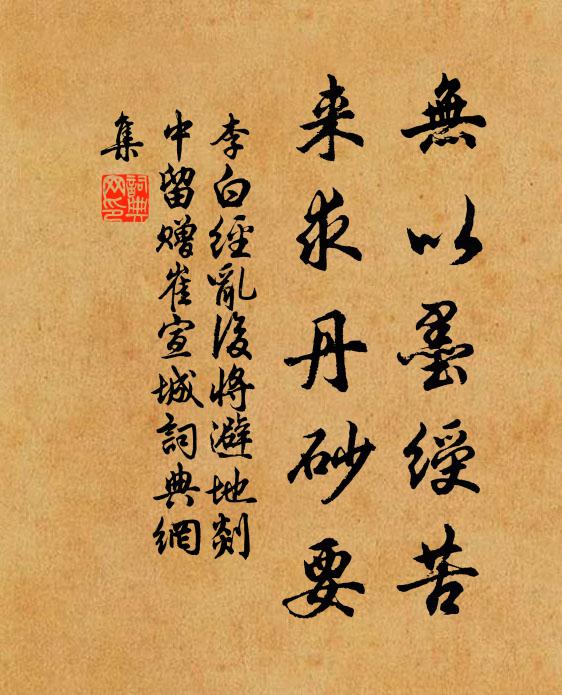 無以墨綬苦
来求丹砂要
李白經亂後將避地剡
中留贈崔宣城詞典網
集
詞典网印